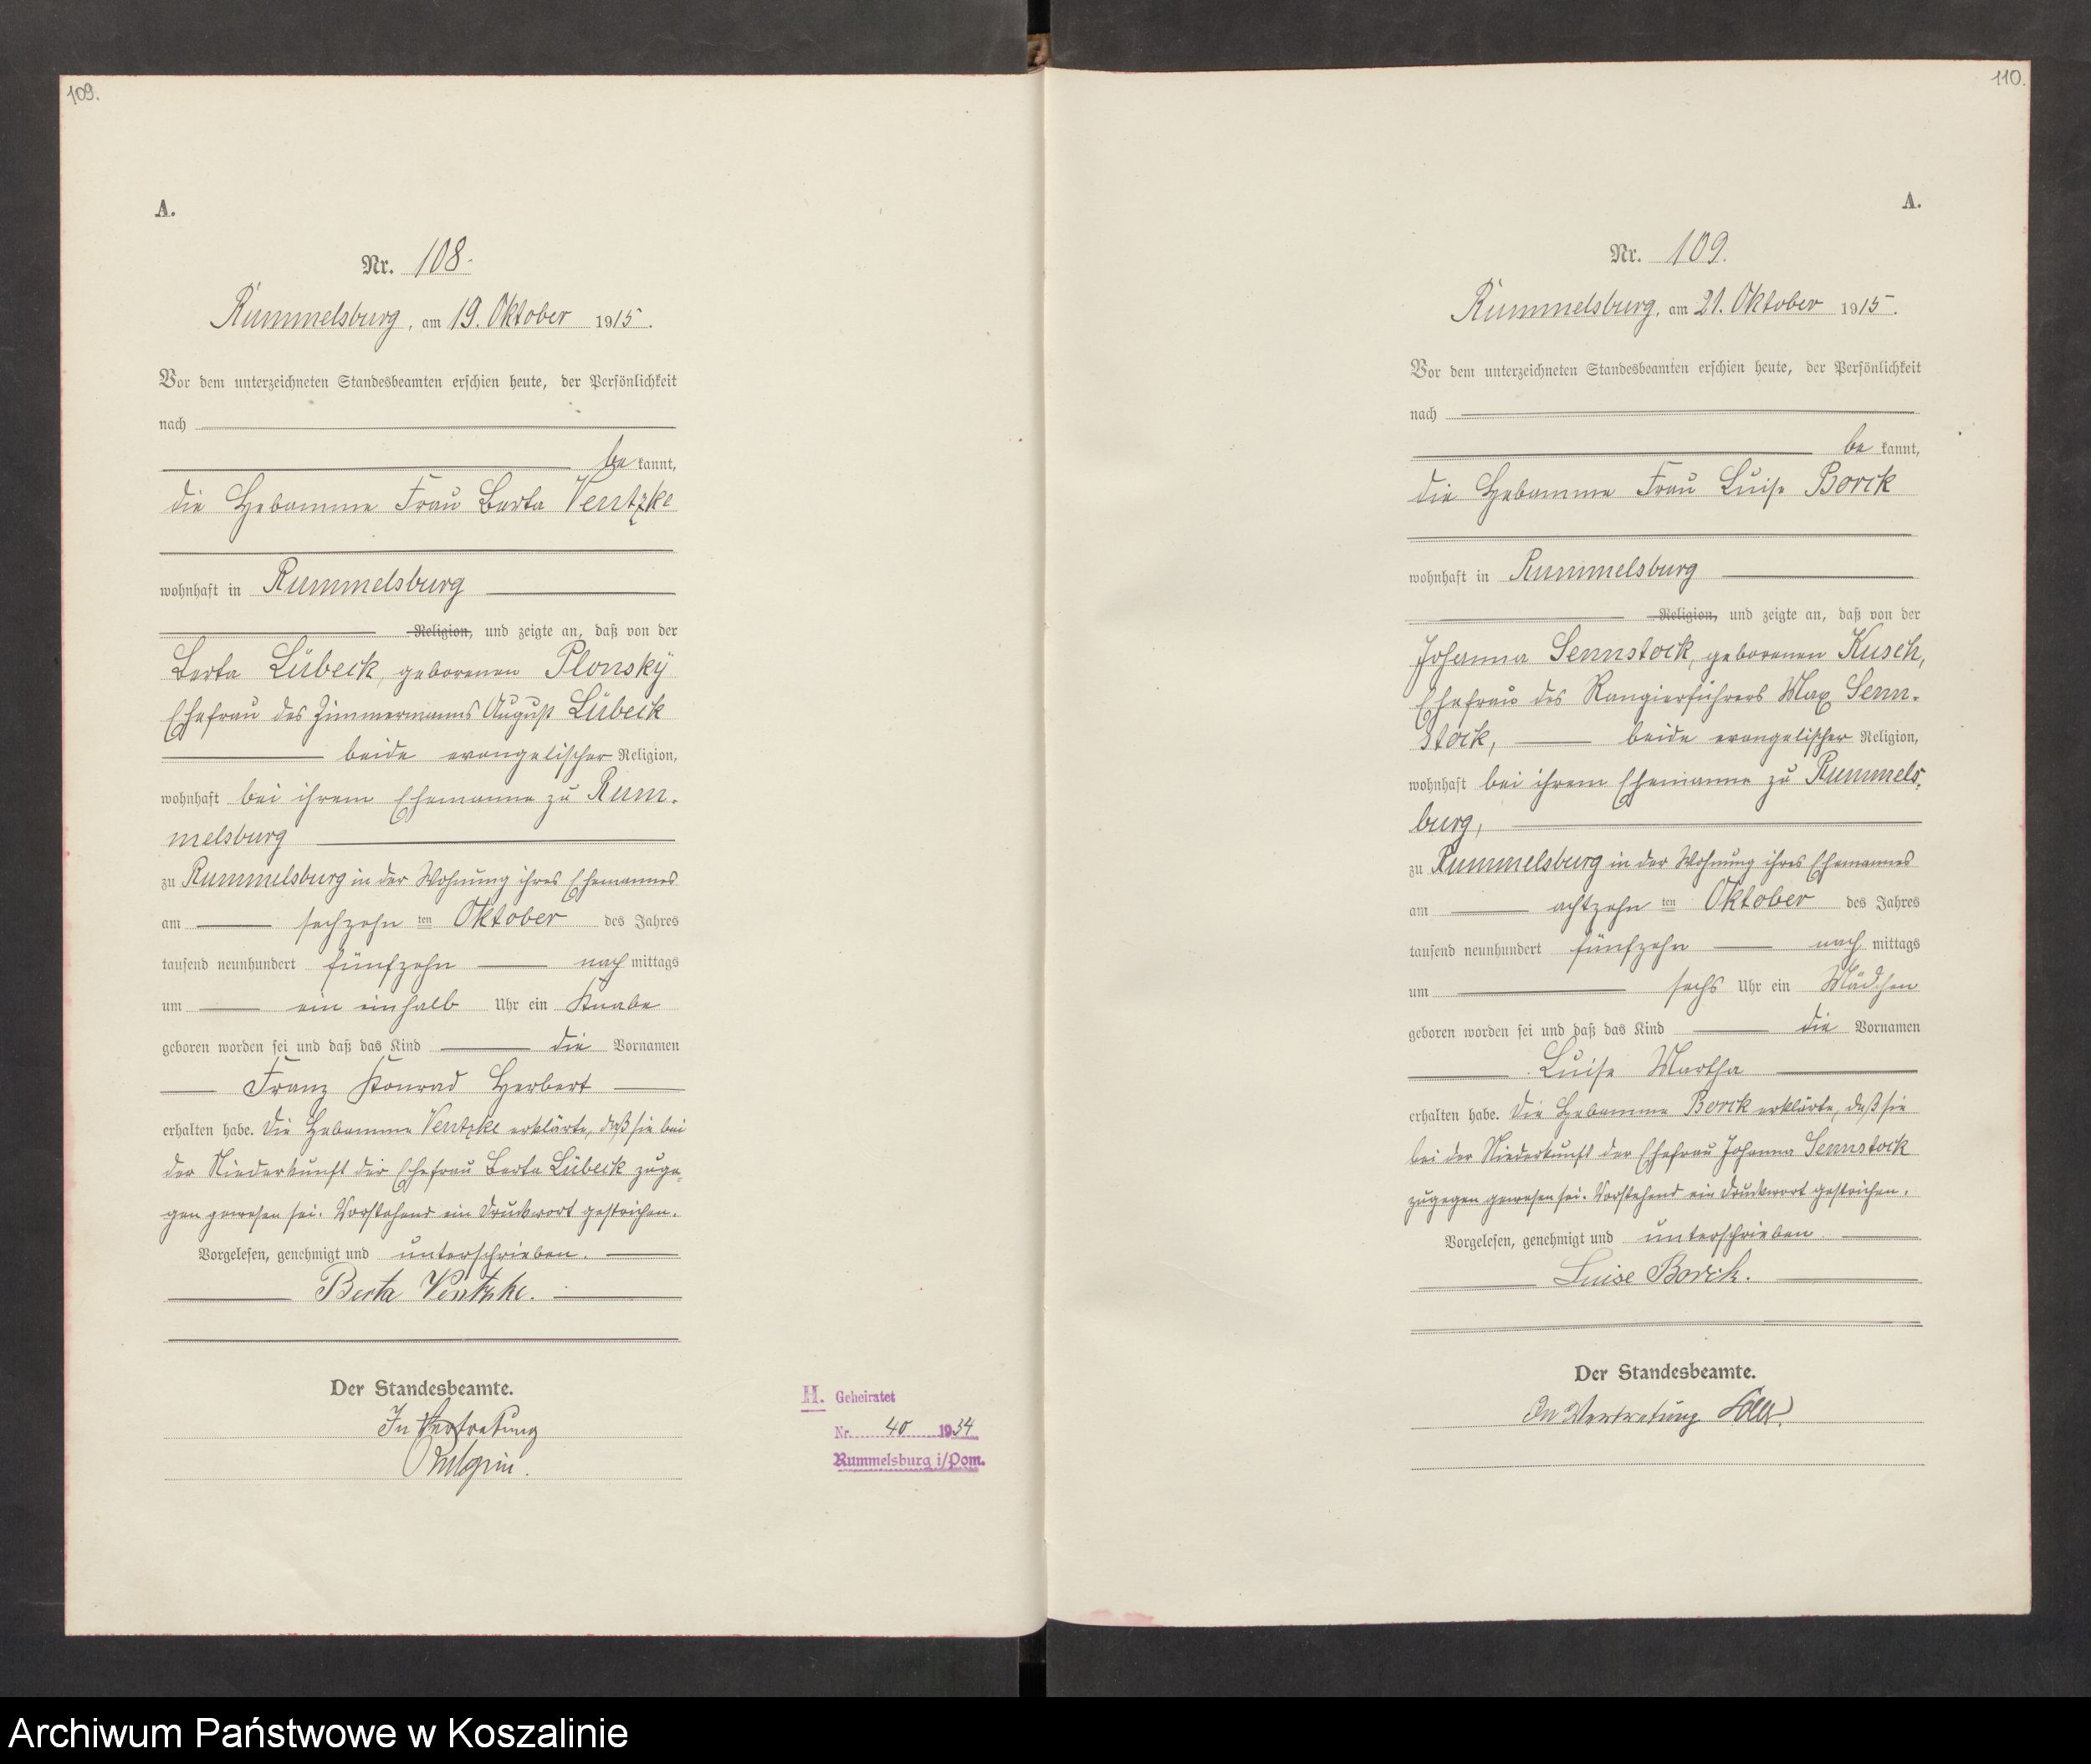 109.
A.
Nr. 108.
Rummelsburg, am 19. Oktober 1915.
Vor dem unterzeichneten Standesbeamten erschien heute, der Persönlichkeit
nach
bekannt,
die Hebamme Frau Berta Ventzke
wohnhaft in Rummelsburg
Religion, und zeigte an, daß von der
Berta Lübeck, geborenen Plonsky
Ehefrau des Zimmermanns August Lübeck
beide evangelischer Religion,
wohnhaft bei ihrem Ehemanne zu Rum-
melsburg
zu Rummelsburg in der Wohnung ihres Ehemannes
am sechzehn ten Oktober des Jahres
tausend neunhundert fünfzehn nachmittags
um ein einhalb Uhr ein Knabe
geboren worden sei und daß das Kind die Vornamen
Franz Konrad Herbert
erhalten habe. Die Hebamme Ventzke erklärte, daß sie bei
der Niederkunft der Ehefrau Berta Lübeck zuge-
gen gewesen sei. Vorstehend ein Druckwort gestrichen.
Vorgelesen, genehmigt und unterschrieben.
Berta Ventzke.
Der Standesbeamte.
In Vertretung
H. Geheiratet
Nr. 40 1934
Rummelsburg i/Pom.
110.
A.
Nr. 109.
Rummelsburg, am 21. Oktober 1915.
Vor dem unterzeichneten Standesbeamten erschien heute, der Persönlichkeit
nach
bekannt,
die Hebamme Frau Luise Borck
wohnhaft in Rummelsburg
Religion, und zeigte an, daß von der
Johanna Sennstock, geborenen Kusch,
Ehefrau des Rangierführers Max Senn-
stock, beide evangelischer Religion,
wohnhaft bei ihrem Ehemanne zu Rummels-
burg,
zu Rummelsburg in der Wohnung ihres Ehemannes
am achtzehn ten Oktober des Jahres
tausend neunhundert fünfzehn nachmittags
um sechs Uhr ein Mädchen
geboren worden sei und daß das Kind die Vornamen
Luise Martha
erhalten habe. Die Hebamme Borck erklärte, daß sie
bei der Niederkunft der Ehefrau Johanna Sennstock
zugegen gewesen sei. Vorstehend ein Druckwort gestrichen.
Vorgelesen, genehmigt und unterschrieben.
Luise Borck.
Der Standesbeamte.
In Vertretung
Archiwum Państwowe w Koszalinie